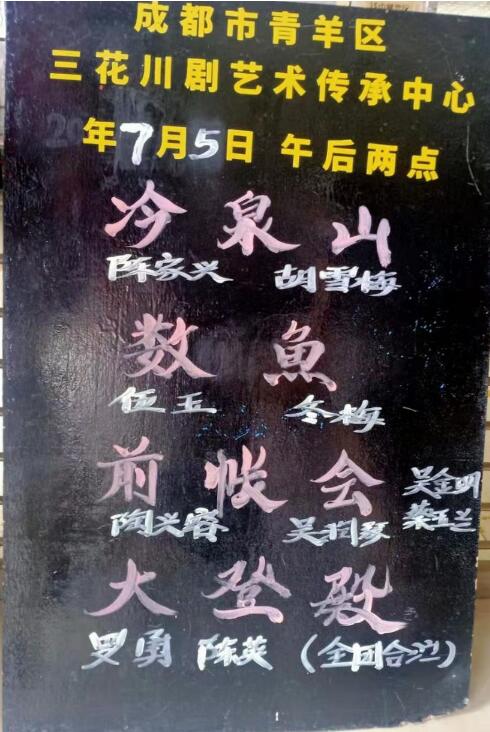 成都市青羊区
三花川剧艺术传承中心
年7月5日 午后两点
冷泉山
陈家兴 胡雪梅
数鱼
伍玉 冬梅
前帐会
陶兴容 吴润琴 吴金明 蔡玉兰
大登殿
罗勇 陈英 (全团合演)